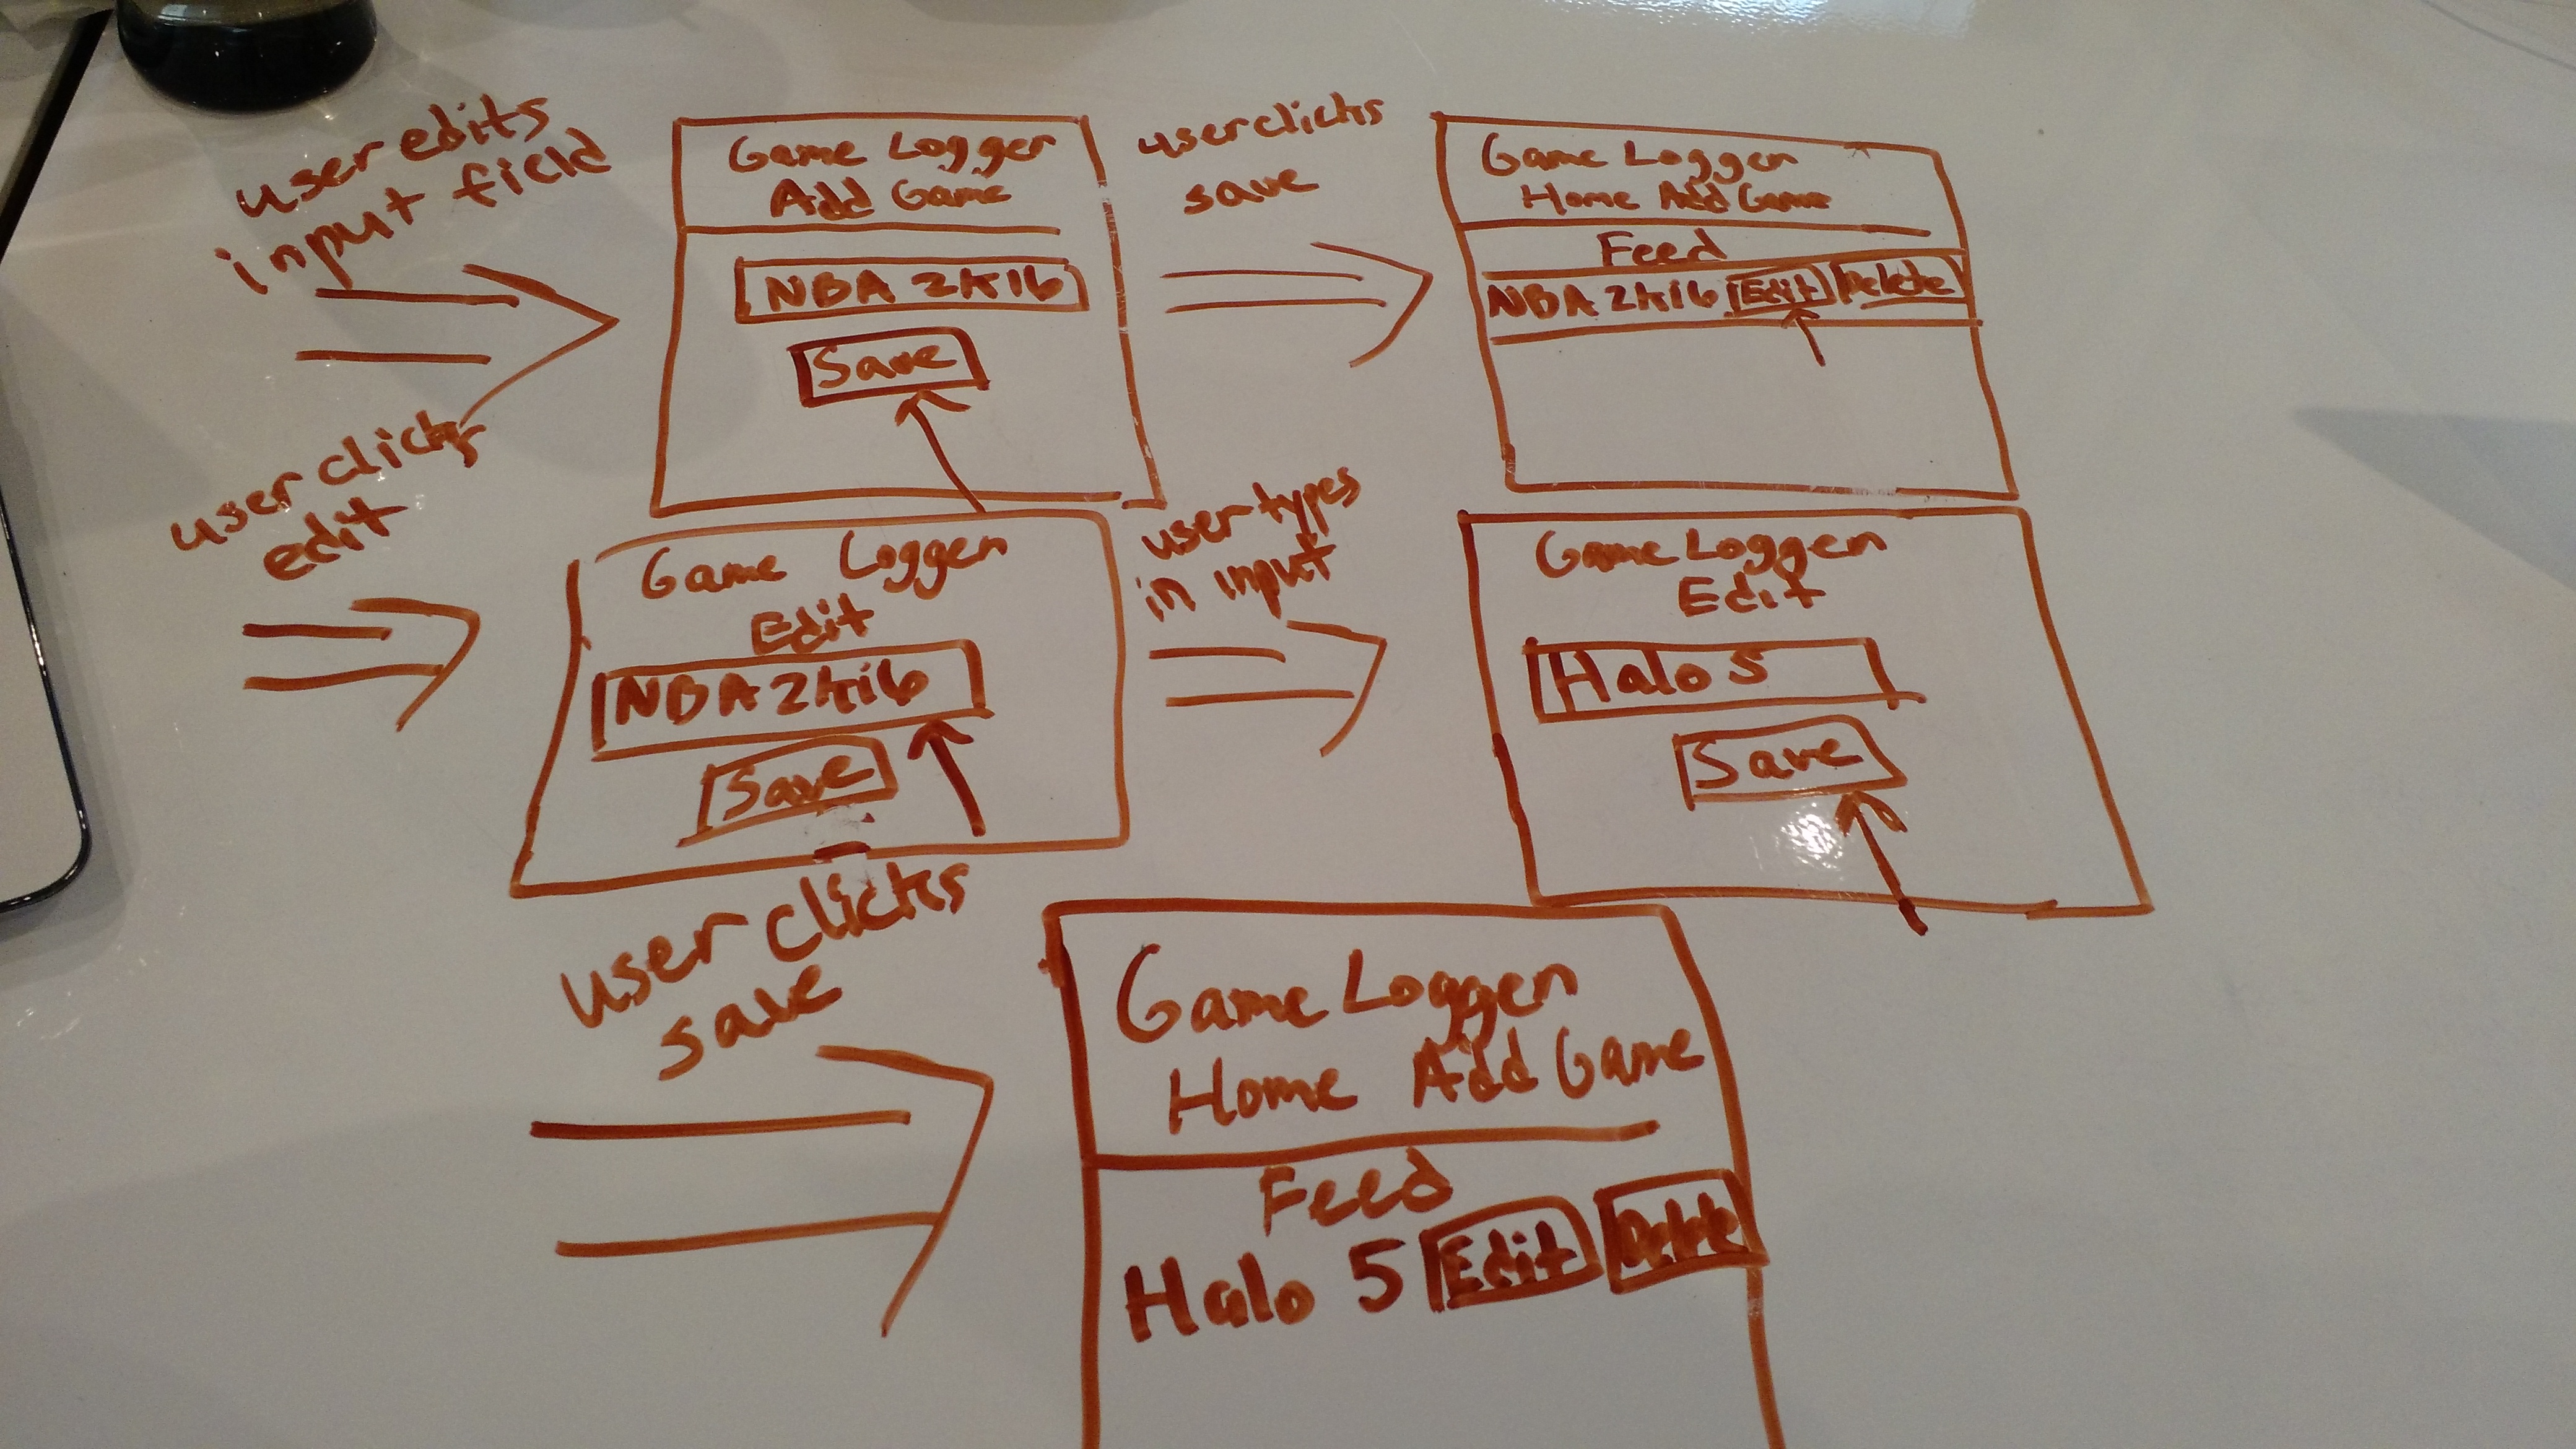 user edits
input field
Game Logger
Add Game
NBA 2K16
Save
user clicks
save
Game Logger
Home Add Game
Feed
NBA 2K16 Edit Delete
user clicks
edit
Game Logger
Edit
NBA 2K16
Save
user types
in input
Game Logger
Edit
Halo 5
Save
user clicks
save
Game Logger
Home Add Game
Feed
Halo 5 Edit Delete